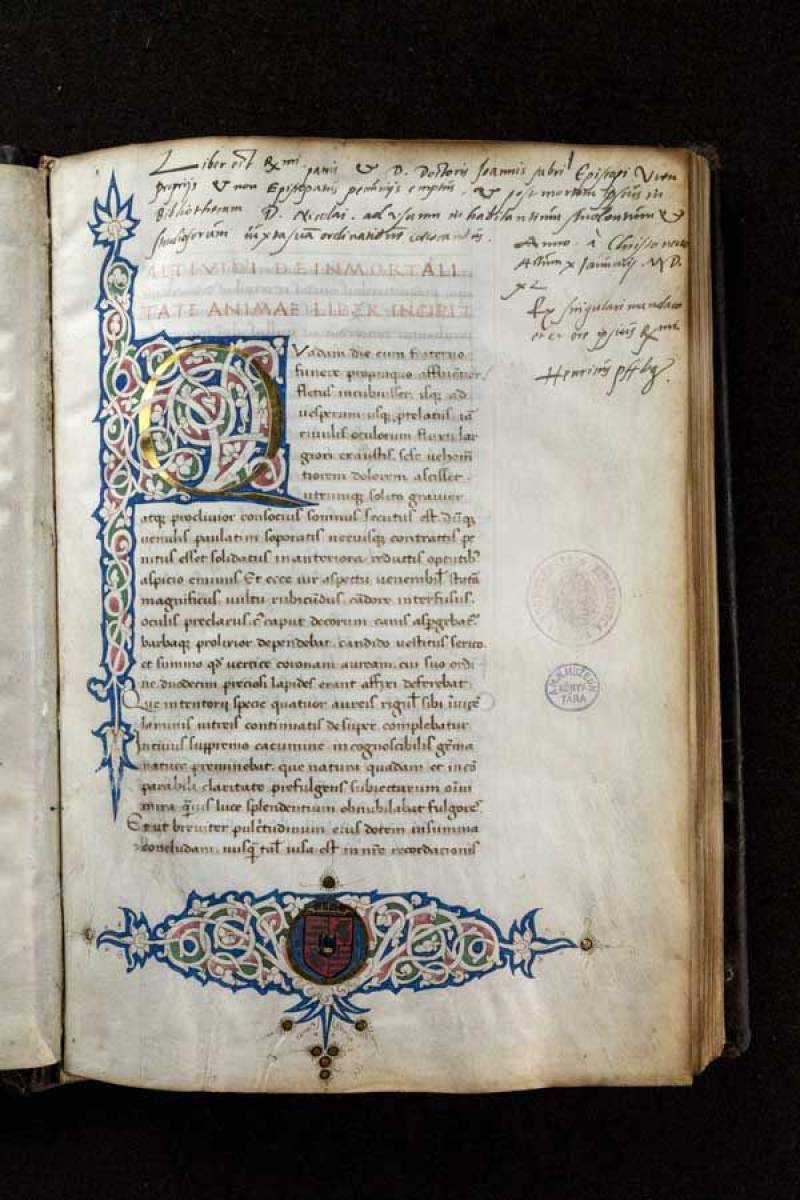 Liber est R.mi patris & D. Doctoris Joannis Fabri Episcopi Vien
proprijs & non Episcopatus pecunijs emptus, & post mortem ipsius in
Bibliothecam D. Nicolai, ad usum inhabitantium studentum &
studiosorum iuxta suam ordinationem collocandus.
Anno à Christo nato
M. D.
XL
Ex singulari mandato
et ex ore ipsius R.mi
ALTIVIDI DE INMORTALI
TATE ANIMAE LIBER INCIPIT
Quadam die cum fraterno
funere propinquo affluentior
fletus incubuisset, usq; ad
uesperam usq; prelatus iā
riuulis oculorum fluxu lar
giori exaustis, sese uehem
tiorem dolorem ascisset
utrumque solito grauior
atq; procliuior consocius somnus secutus est. Dūq;
uenulis paulatim soporatis neruisq; contractis pe
nitus esset solidatus in anteriora reductis optutibꝰ
aspicio eminus Et ecce uir aspectu uenerabil
magnificus, uultu rubicūdus cādore interfusus,
oculis preclarus caput decorum canis
barbaq; prolixior dependebat, candido uestitus serico
et summo qd uertice coronam auream, cui suo ordi
ne duodecim preciosi lapides erant affixi deferebat.
Que in tentorij specie quatuor aureis sibi
laminis uitreis continuatis desuper complebatur
In cuius suppremo cacumine incognoscibilis gēma
nature preminebat, que natura quadam et incō
parabili claritate prefulgens subiectarum oīm
mira luce splendentium obnubilabat fulgorē.
Et ut breuiter pulcritudinum eius dotem in summa
concludam, nusq̄ tal uisa est in nrē recordacionis
MUZEUM
KÖNYV
TÁRA